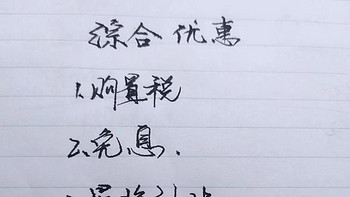 综合优惠
1.购置税
2.免息.